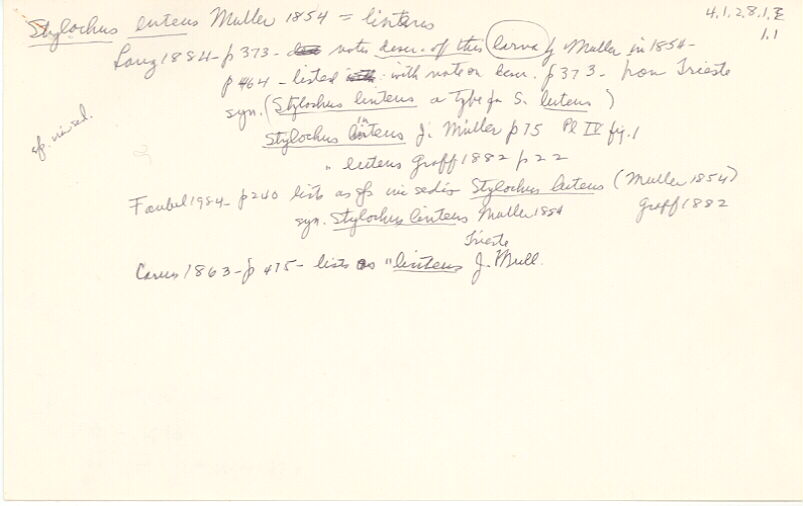 Stylochus luteus Muller 1854 = linteus
4.1.2.8.1.
1.1
Lang 1884 - p 373 - notes descr. of this larva by Muller in 1854 -
p 464 - listed with note on descr. p 373 - from Trieste
syn. (Stylochus linteus a typo for S. luteus)
sp. inc sed.
Stylochus linteus J. Müller p 75 Pl IV fig. 1
" luteus Graff 1882 p 22
Faubel 1984 - p 240 lists as sp inc sedis Stylochus luteus (Muller 1854)
Graff 1882
syn. Stylochus linteus Muller 1854
Trieste
Carus 1863 - p 475 - lists as "linteus J. Mull.